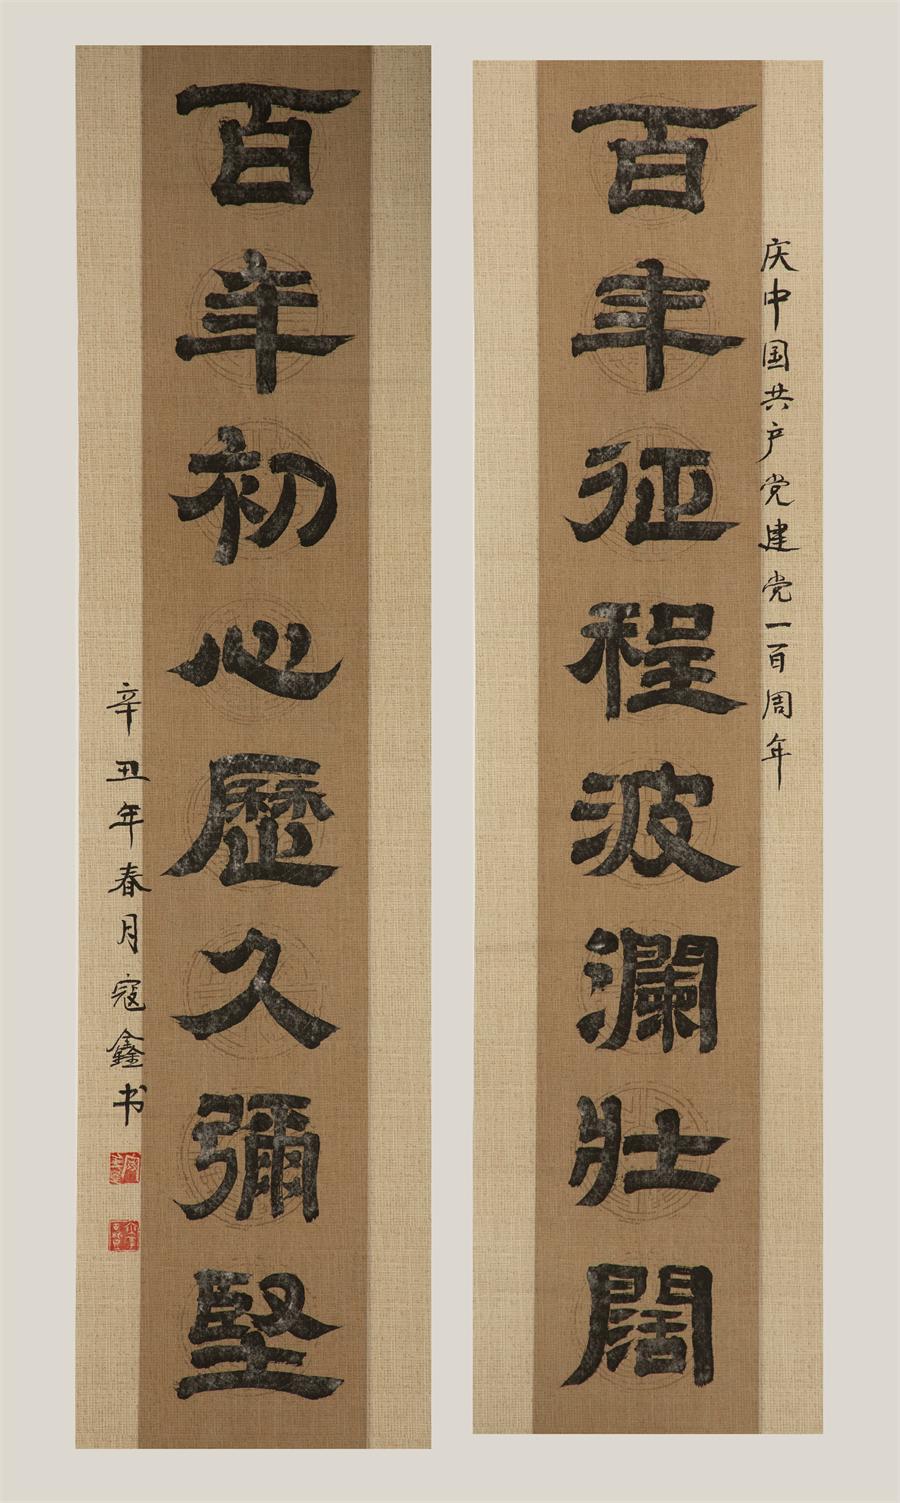 庆中国共产党建党一百周年
百年征程波瀾壯闊
百年初心歷久彌堅
辛丑年春月寇鑫书